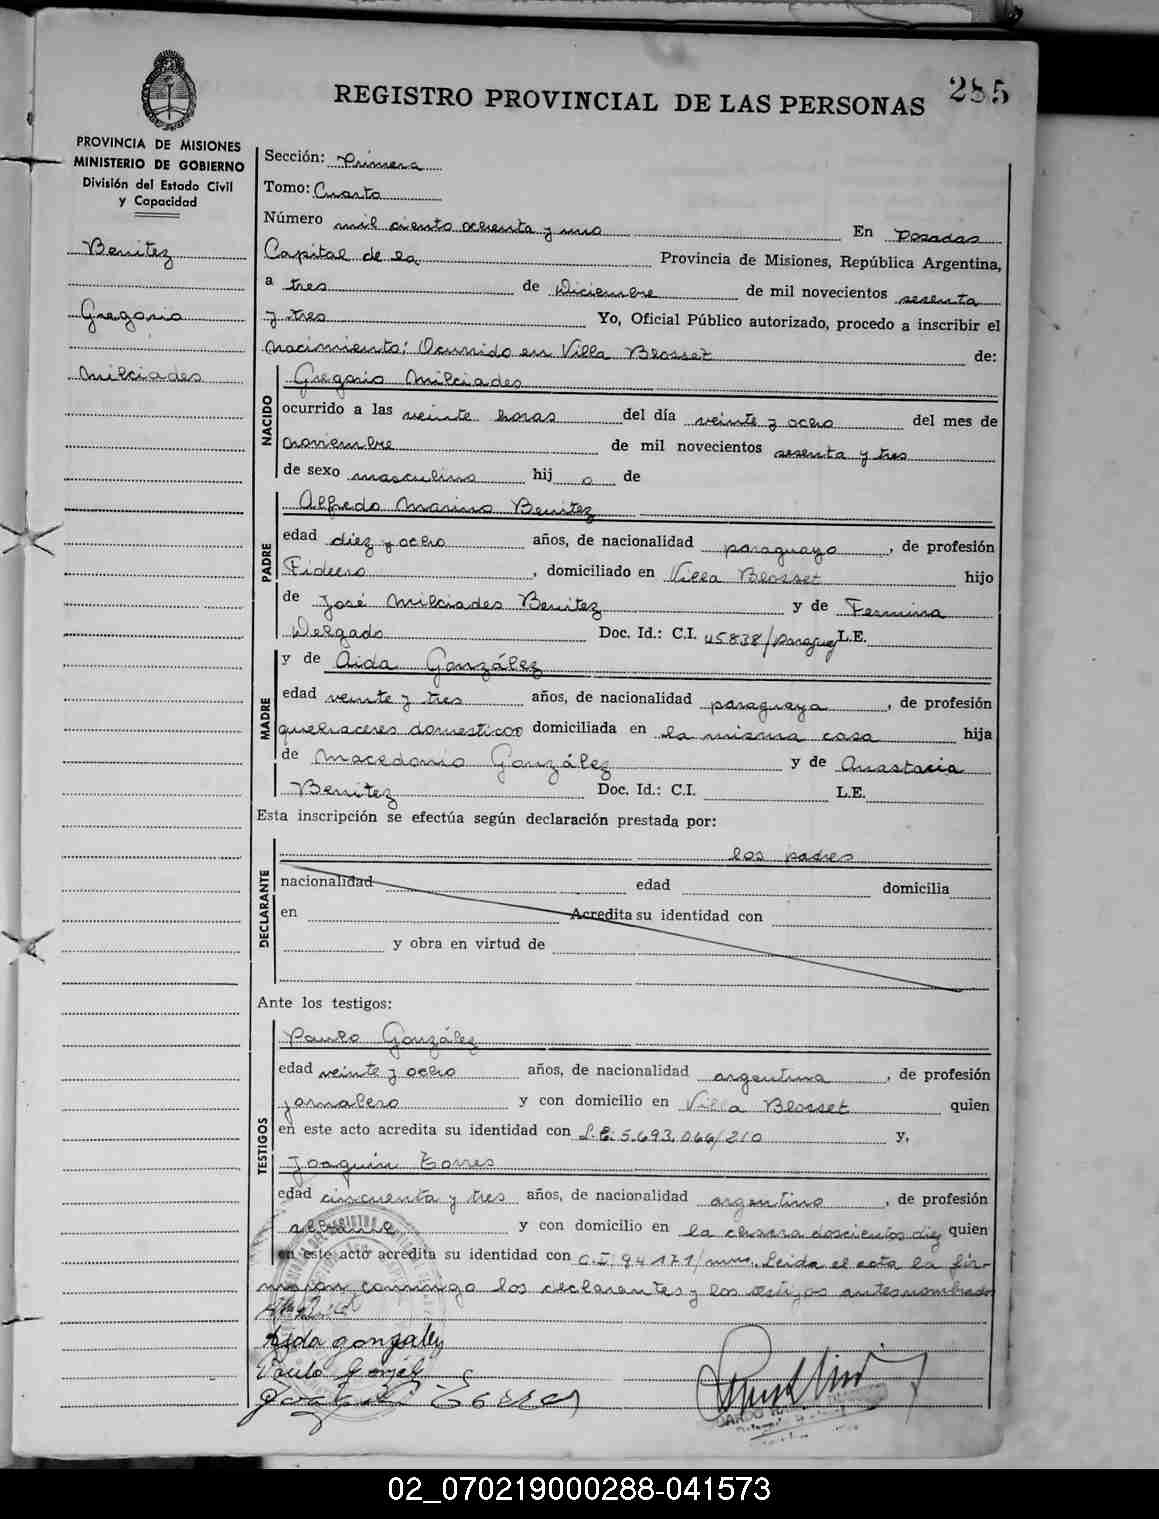 285
REGISTRO PROVINCIAL DE LAS PERSONAS
PROVINCIA DE MISIONES
MINISTERIO DE GOBIERNO
División del Estado Civil
y Capacidad
Benitez
Gregorio
Milciades
Sección: Primera
Tomo: Cuarto
Número mil ciento ochenta y uno En Posadas
Capital de la Provincia de Misiones, República Argentina,
a tres de Diciembre de mil novecientos sesenta
y tres Yo, Oficial Público autorizado, procedo a inscribir el
nacimiento: Ocurrido en Villa Blosset de:
NACIDO
Gregorio Milciades
ocurrido a las veinte horas del día veinte y ocho del mes de
noviembre de mil novecientos sesenta y tres
de sexo masculino hij o de
PADRE
Alfredo Marino Benitez
edad diez y ocho años, de nacionalidad paraguayo, de profesión
Fideero, domiciliado en Villa Blosset hijo
de José Milciades Benitez y de Fermina
Delgado Doc. Id.: C.I. 45838/paraguay L.E.
MADRE
y de Aida González
edad veinte y tres años, de nacionalidad paraguaya, de profesión
quehaceres domesticos domiciliada en la misma casa hija
de Macedonio González y de Anastacia
Benitez Doc. Id.: C.I. L.E.
Esta inscripción se efectúa según declaración prestada por:
DECLARANTE
los padres
nacionalidad edad domicilia
en Acredita su identidad con
y obra en virtud de
Ante los testigos:
TESTIGOS
Paulo González
edad veinte y ocho años, de nacionalidad argentina, de profesión
jornalero y con domicilio en Villa Blosset quien
en este acto acredita su identidad con L.E. 5.693.066/210 y,
Joaquin Torres
edad cincuenta y tres años, de nacionalidad argentino, de profesión
y con domicilio en la chacra doscientos diez quien
en este acto acredita su identidad con C.I. 94171/mnes. Leida el acta la fir-
maron conmigo los declarantes y los testigos antesnombrados
Aida gonzalez
Paulo
02_070219000288-041573